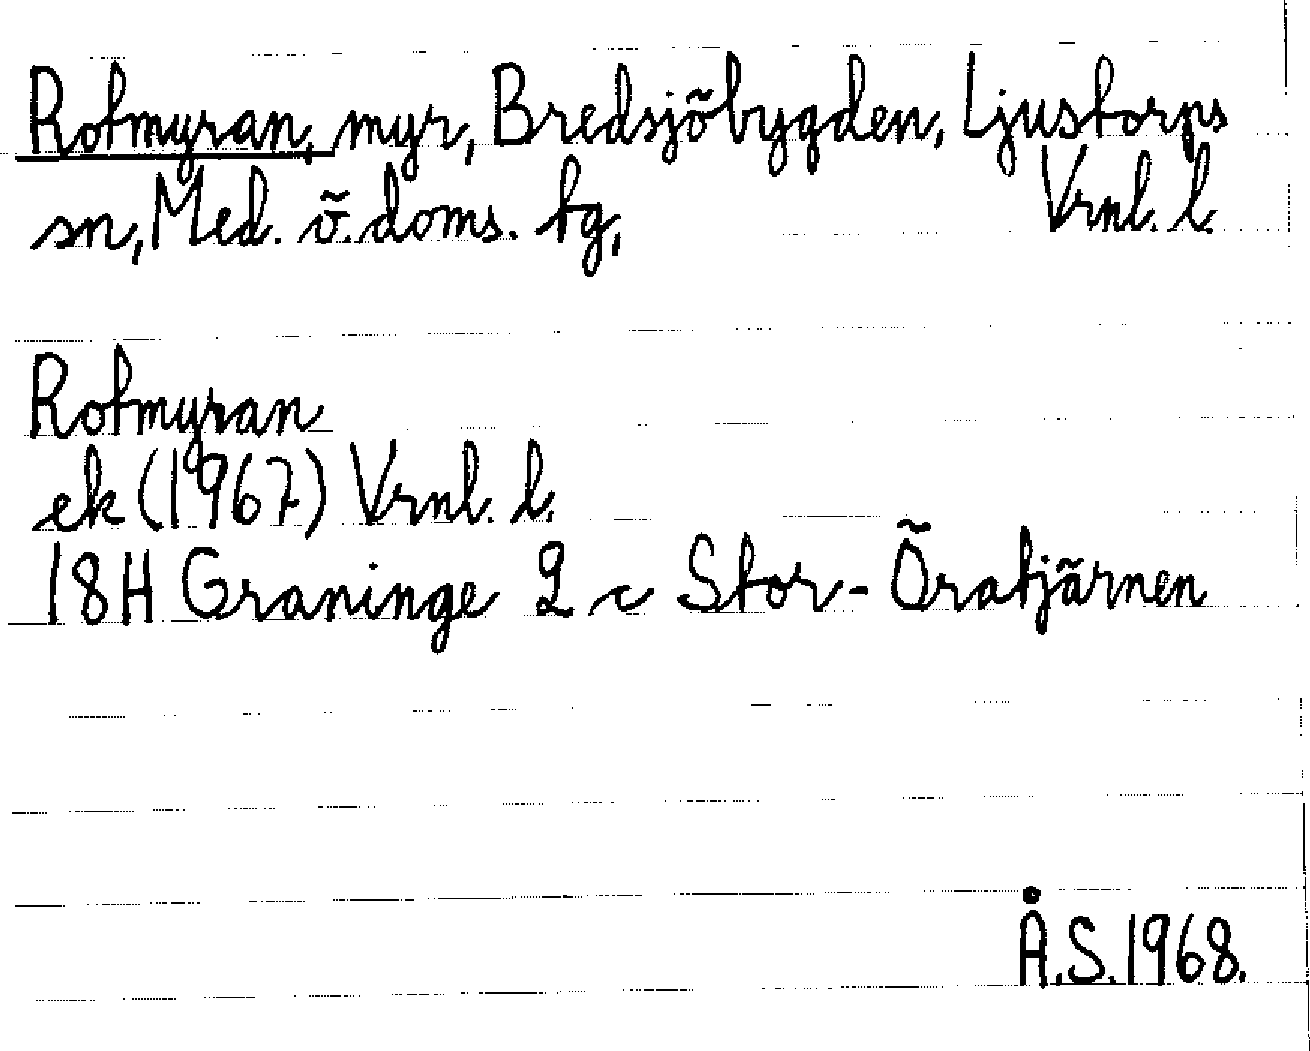 Rotmyran, myr, Bredsjöbygden, Ljustorps
sn, Med. ö. doms. tg, Vrnl. l.
Rotmyran
ek (1967) Vrnl. l.
18H Graninge 2 c Stor-Öratjärnen
Å.S. 1968.